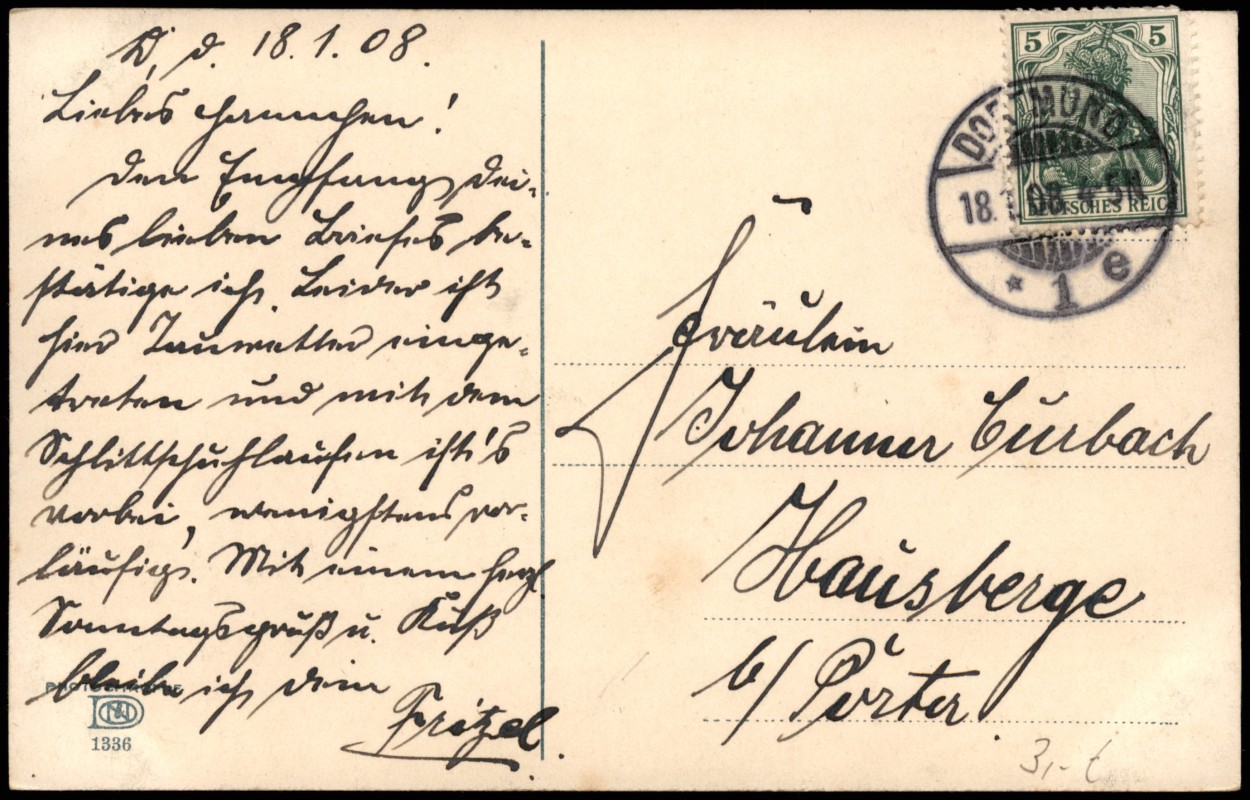 D, d. 18.1.08.
Liebes Hannchen!
Den Empfang dei-
nes lieben Briefes be-
stätige ich. Leider ist
hier Tauwetter einge-
treten und mit dem
Schlittschuhlaufen ist's
vorbei, wenigstens vor-
läufig. Mit einem herzl
Sonntagsgruß u. Kuß
bleibe ich dein
Fritzel.
1336
5 5
DEUTSCHES REICH
DORTMUND
18.1.08. 4-5N
* 1 e
Fräulein
Johanne Curbach
Hausberge
b/ Porta
3,-